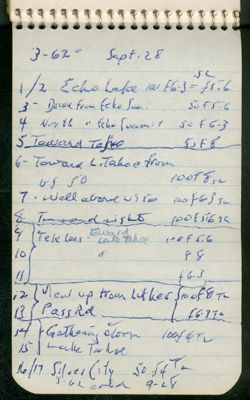 3-62- Sept. 28
SL
1/2 Echo Lake 100 F6.3 = f5.6
3 - Down from Echo Sum. 50 F5.6
4 North " Echo Summit 50 F6.3
5 Toward Tahoe 50 F8
6 - Toward L. Tahoe from
US 50 100 F8 SL
7 - Wall above US 50 100 F6.3 SL
8 100 f5.6 SL
9 Tele Lens Toward Lake Tahoe 50 F5.6
10 " F8
11 f6.3
12 View up from Luther 50 F8 TL
13 Pass Rd. F6.3 TL
14 Gathering storm 100 f4 TL
15 Lake Tahoe
16/17 Silver City 50 f4 TL
9-28